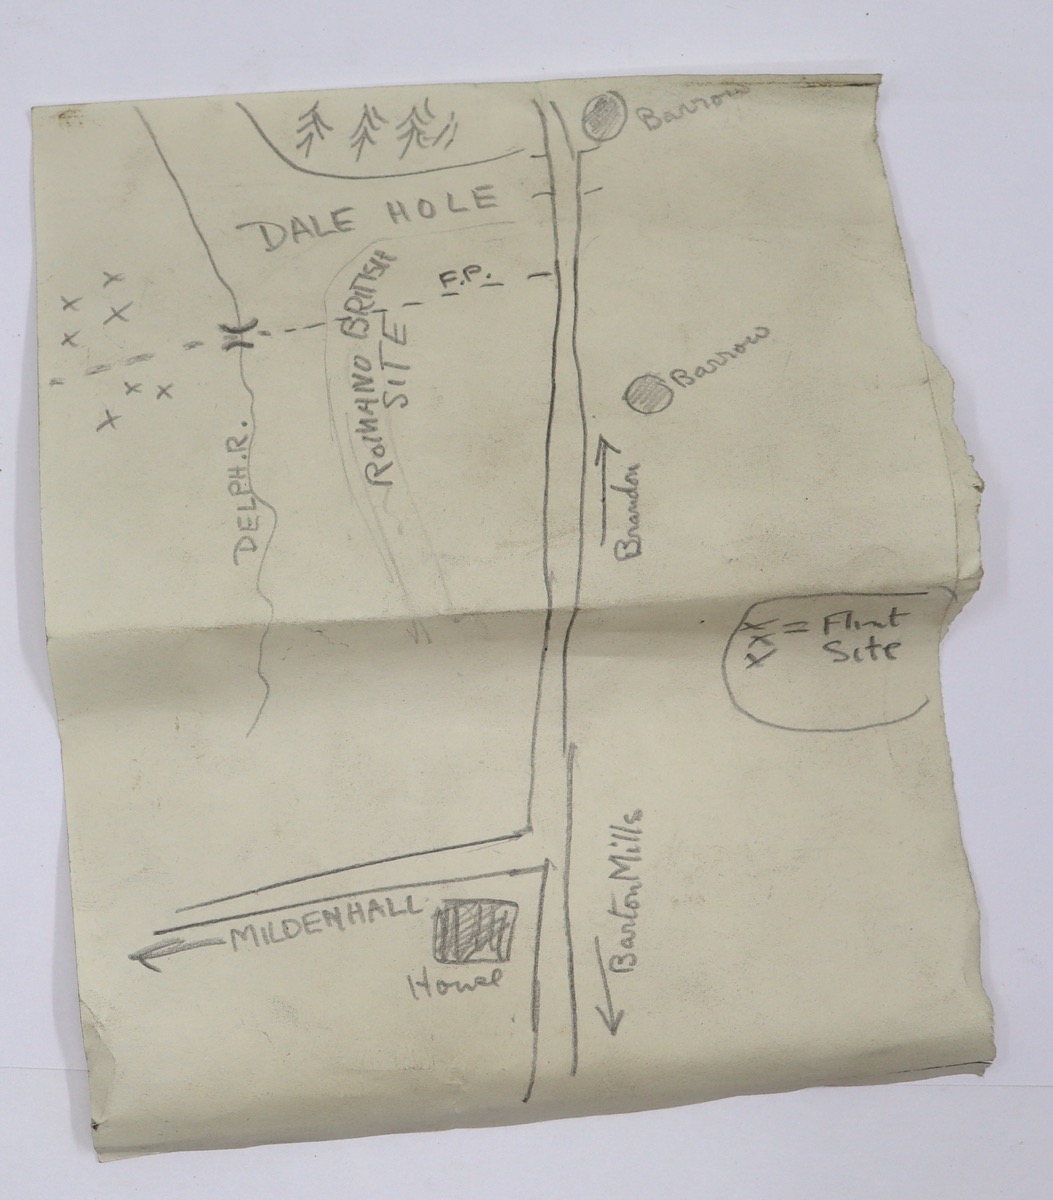 Barrow
DALE HOLE
F.P.
ROMANO BRITISH
SITE
Barrow
DELPH.R.
Brandon
x x x = Flint
Site
Barton Mills
MILDENHALL
House